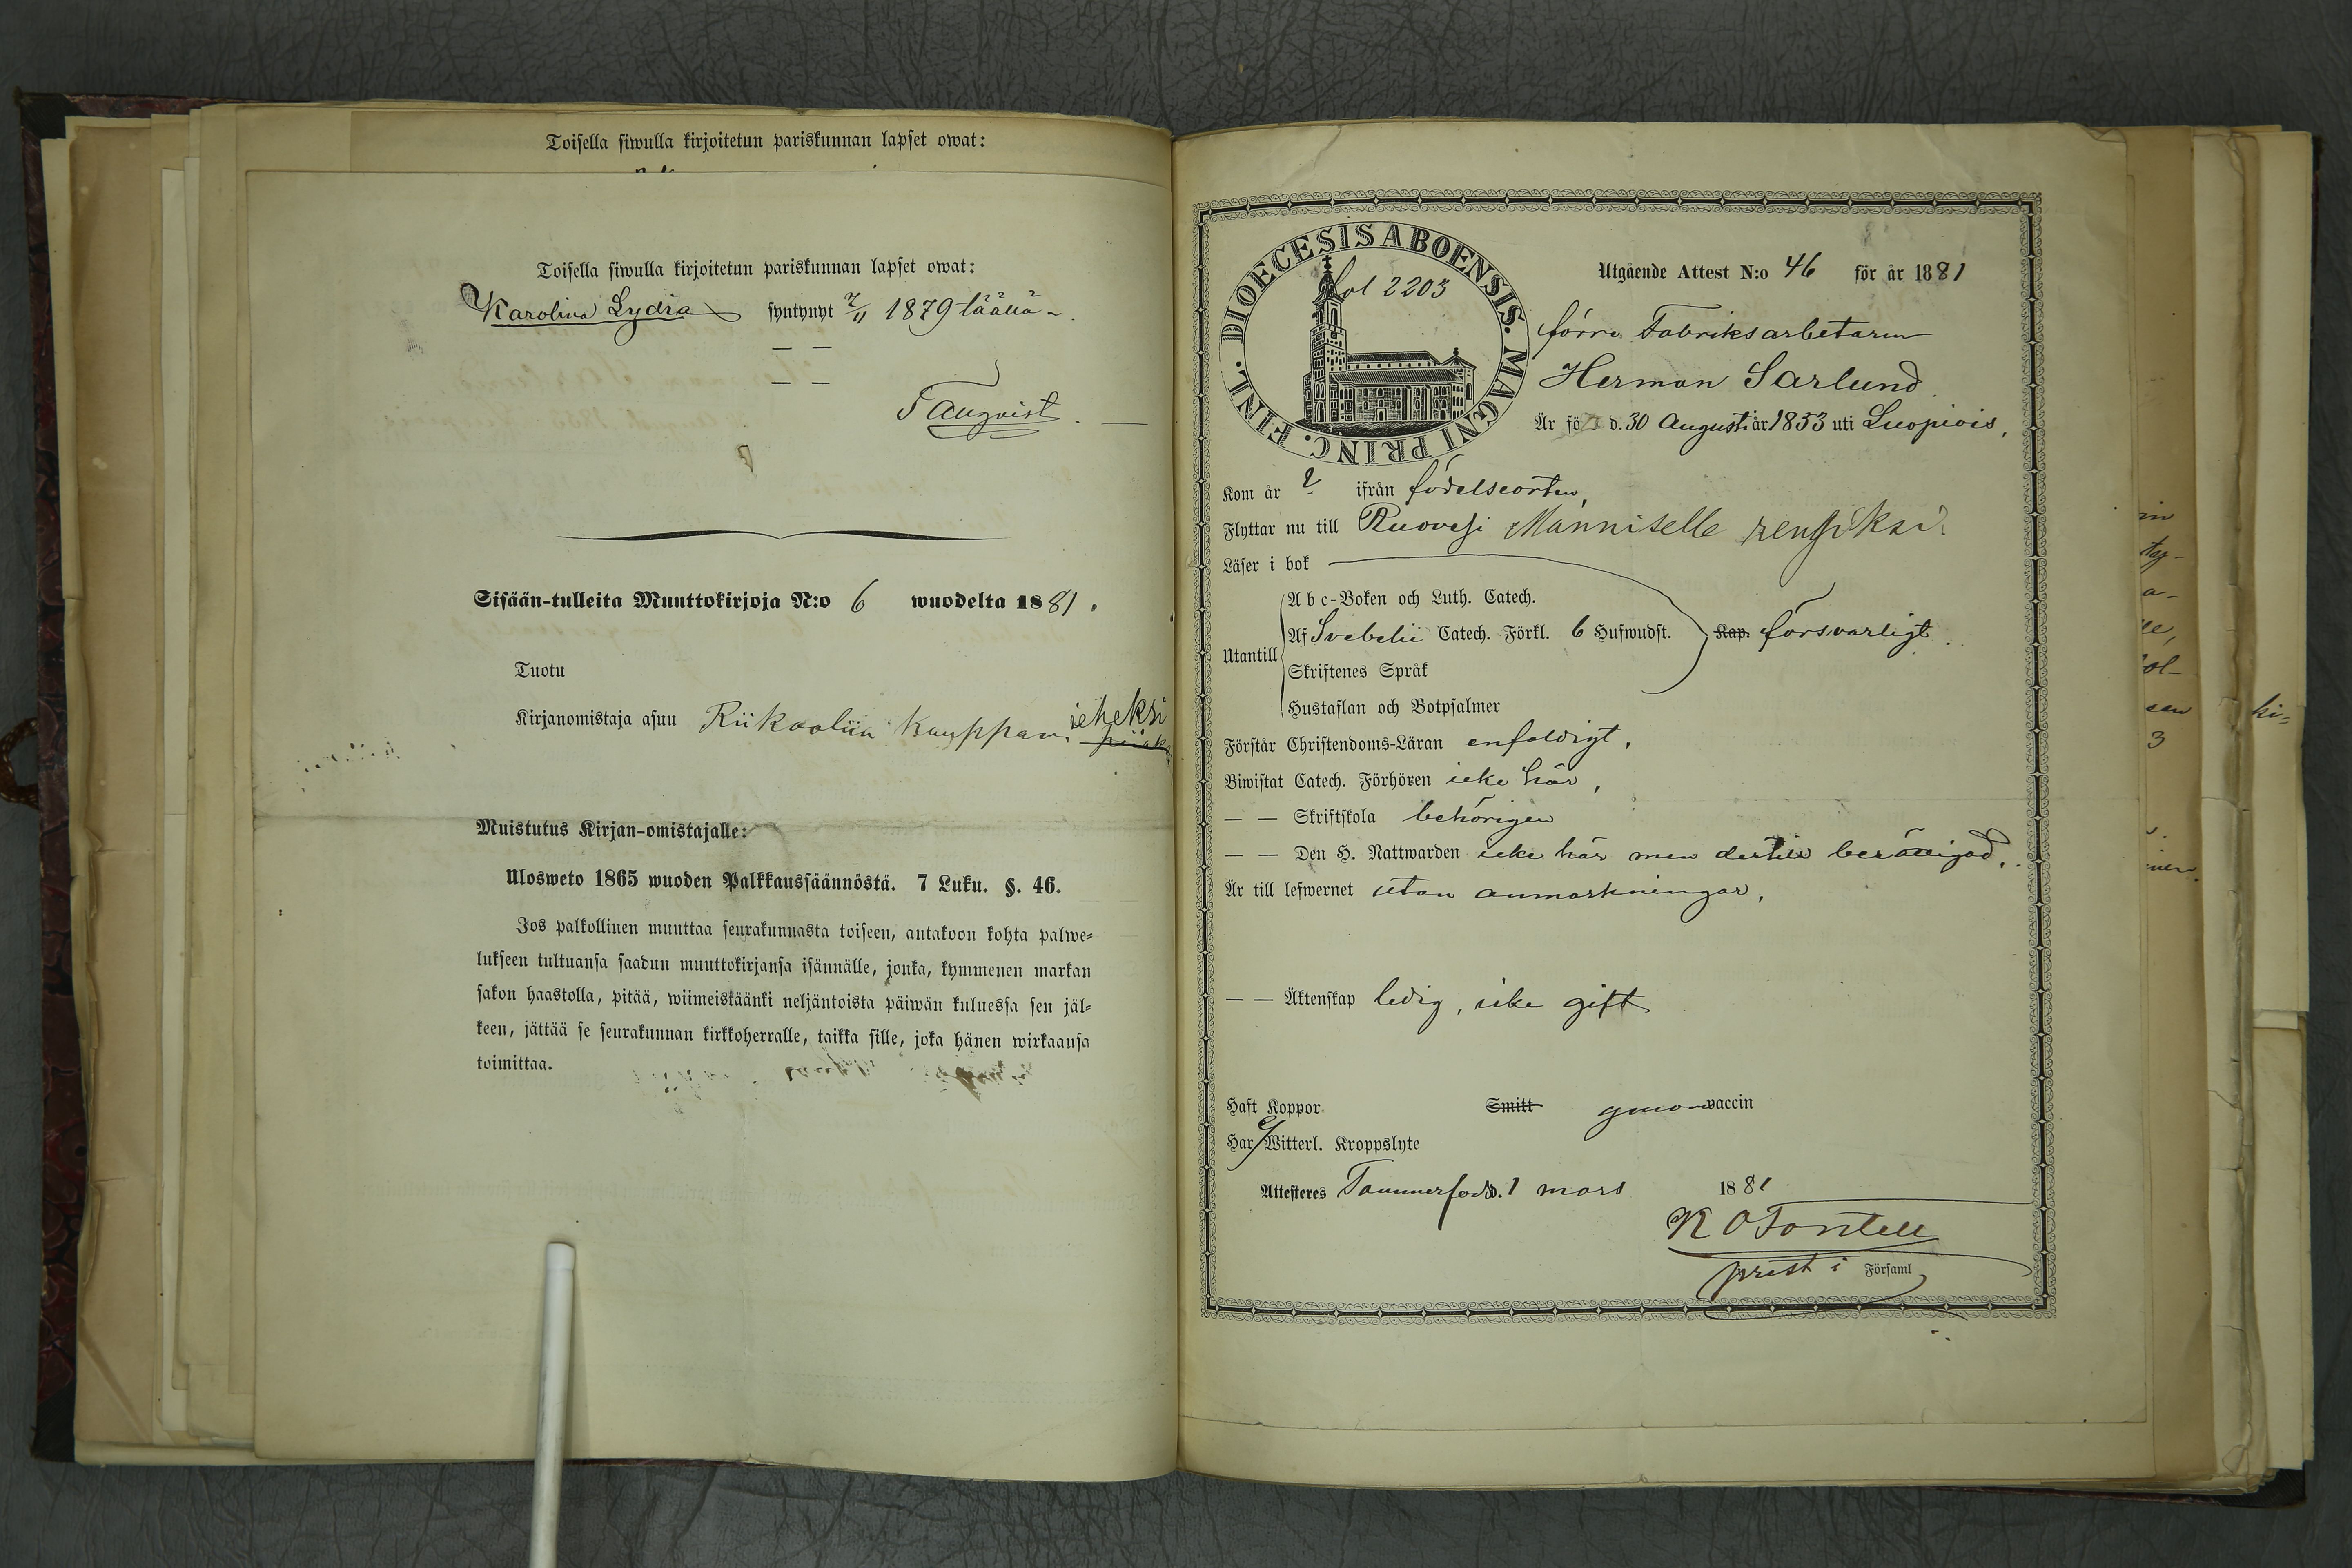 Toisella siwulla kirjoitetun pariskunnan lapset owat:
Toisella siwulla kirjoitetun pariskunnan lapset owat:
Karolina Lydia syntynyt 7/11 1879 täällä
— —
— —
Sisään-tulleita Muuttokirjoja N:o 6 wuodelta 1881.
Tuotu
Kirjanomistaja asuu Riikaoliin kauppam.
Muistutus Kirjan-omistajalle:
Ulosweto 1865 wuoden Palkkaussäännöstä. 7 Luku. §. 46.
Jos palkollinen muuttaa seurakunnasta toiseen, antakoon kohta palwe-
lukseen tultuansa saadun muuttokirjansa isännälle, jonka, kymmenen markan
sakon haastolla, pitää, wiimeistäänki neljäntoista päiwän kuluessa sen jäl-
keen, jättää se seurakunnan kirkkoherralle, taikka sille, joka hänen wirkaansa
toimittaa.
DIOECESIS ABOENSIS. MAGNI PRINC. FINL.
fol 2203
Utgående Attest N:o 46 för år 1881
förre Fabriksarbetaren
Herman Sarlund
Är född d. 30 Augusti år 1853 uti Luopiois,
Kom år ? ifrån födelseorten,
Flyttar nu till Ruovesi Männiselle rengiksi
Läser i bok
Utantill
A b c-Boken och Luth. Catech.
Af Svebelii Catech. Förkl. 6 Hufwudst. Kap. försvarligt.
Skriftenes Språk
Hustaflan och Botpsalmer
Förstår Christendoms-Läran enfaldigt,
Biwistat Catech. Förhören icke här,
— — Skriftskola behörigen
— — Den H. Nattwarden icke här men dertill berättigad,
Är till lefwernet utan anmärkningar,
— — Äktenskap ledig, icke gift
Haft Koppor Smitt genom vaccin
Har ej Witterl. Kroppslyte
Attesteres Tammerfors d. 1 mars 1881
K O Fontell
prest i Församl